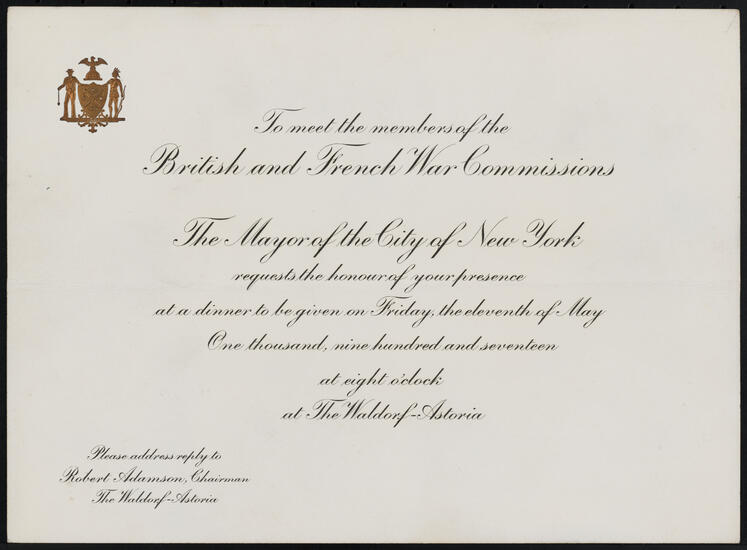 To meet the members of the
British and French War Commissions
The Mayor of the City of New York
requests the honour of your presence
at a dinner to be given on Friday, the eleventh of May
One thousand, nine hundred and seventeen
at eight o'clock
at The Waldorf-Astoria
Please address reply to
Robert Adamson, Chairman
The Waldorf-Astoria